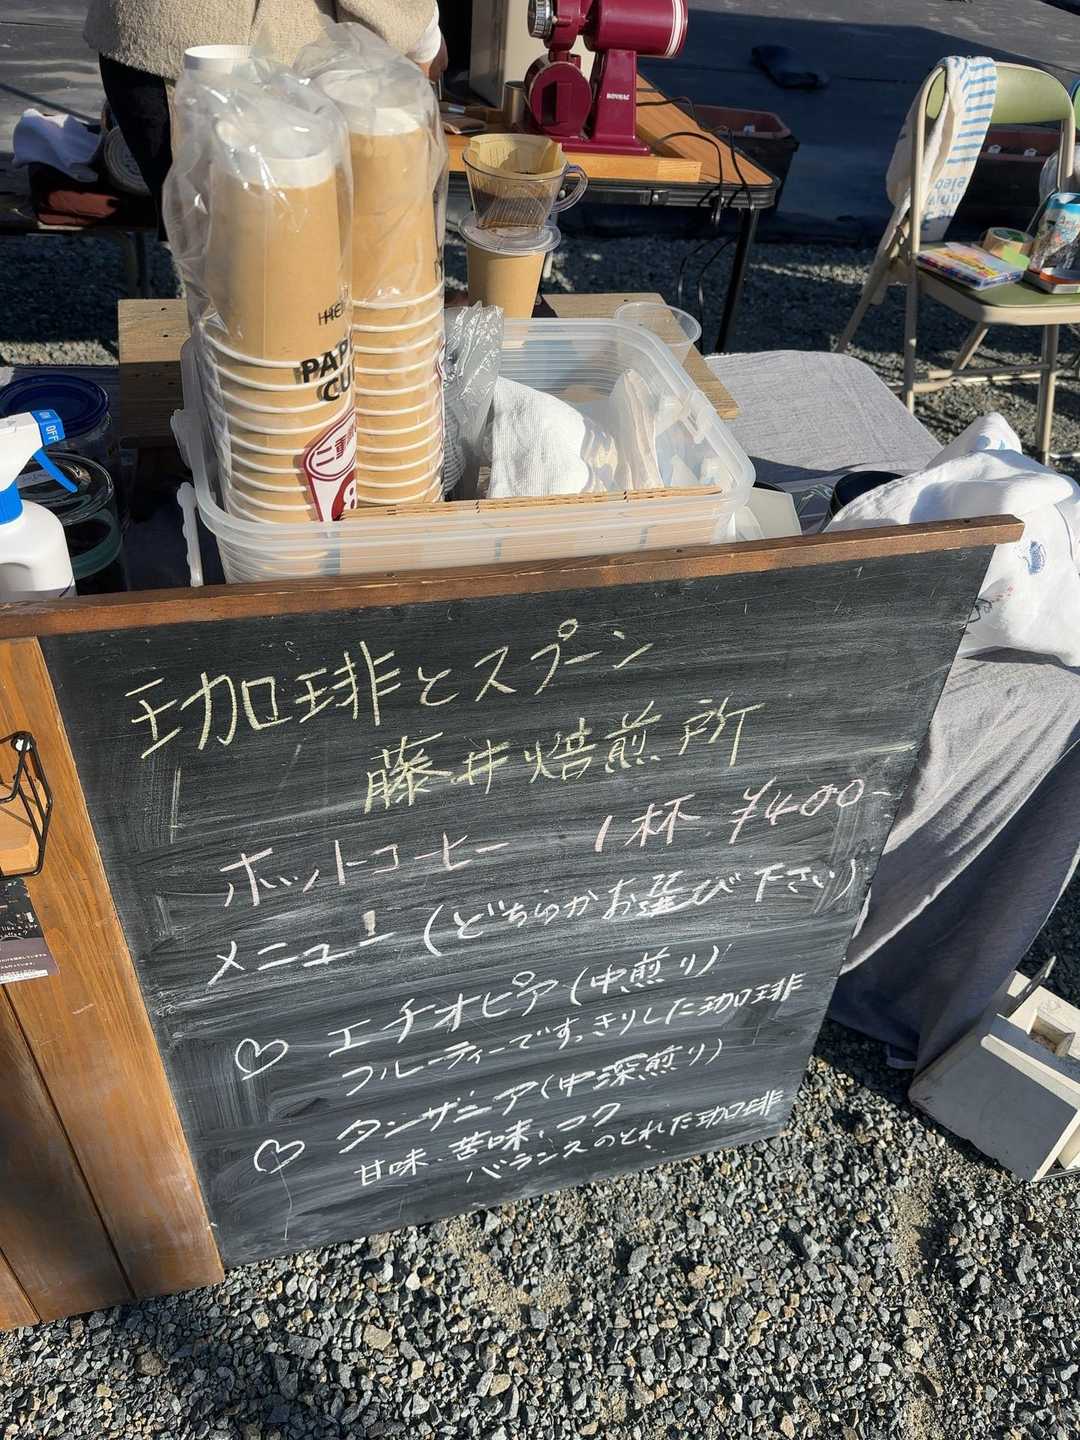 BONMAC
PAPER
CUP
二重
ON
OFF
珈琲とスプーン
藤井焙煎所
ホットコーヒー 1杯 ¥400-
メニュー(どちらかお選び下さい)
♡ エチオピア(中煎り)
フルーティーですっきりした珈琲
♡ タンザニア(中深煎り)
甘味、苦味、コク
バランスのとれた珈琲